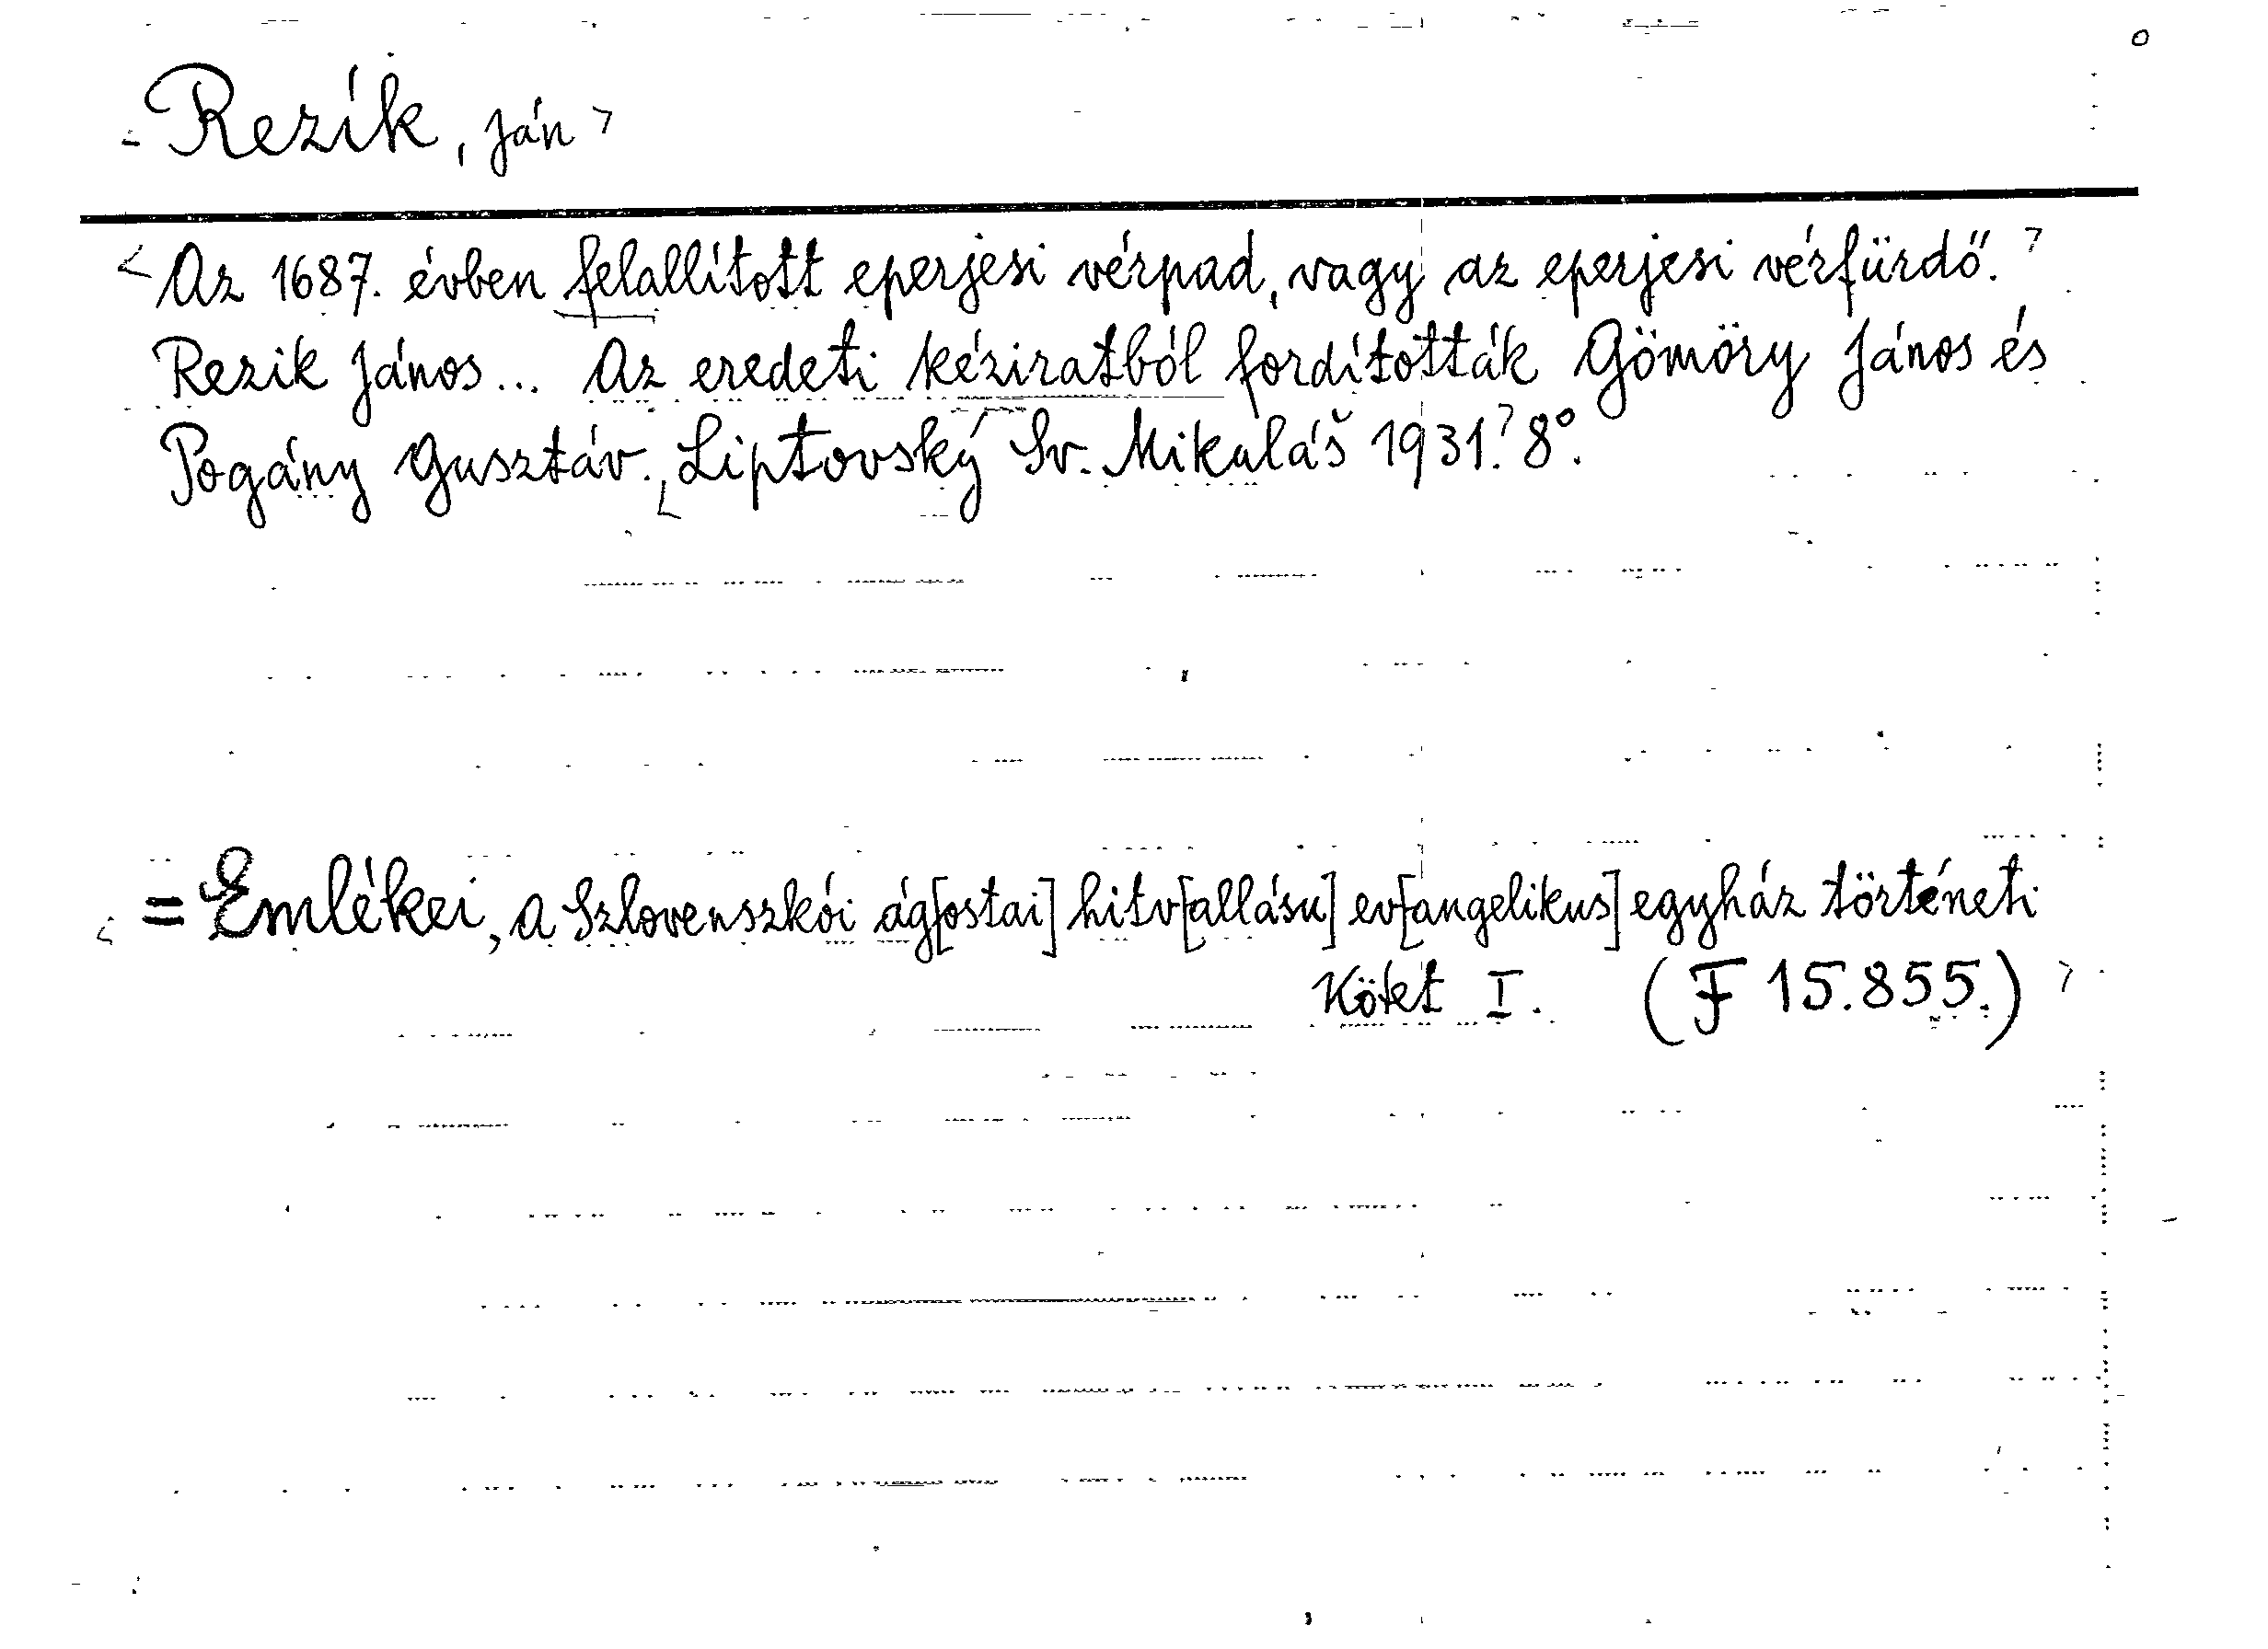 Rezík, Ján
Az 1687. évben felallított eperjesi vérpad, vagy az eperjesi vérfürdő.
Rezik János... Az eredeti kéziratból fordították Gömöry János és
Pogány Gusztáv. Liptovský Sv. Mikuláš 1931. 8°.
= Emlékei, a Szlovenszkói ág[ostai] hitv[allásu] ev[angelikus] egyház történeti
Kötet I. (F 15.855.)